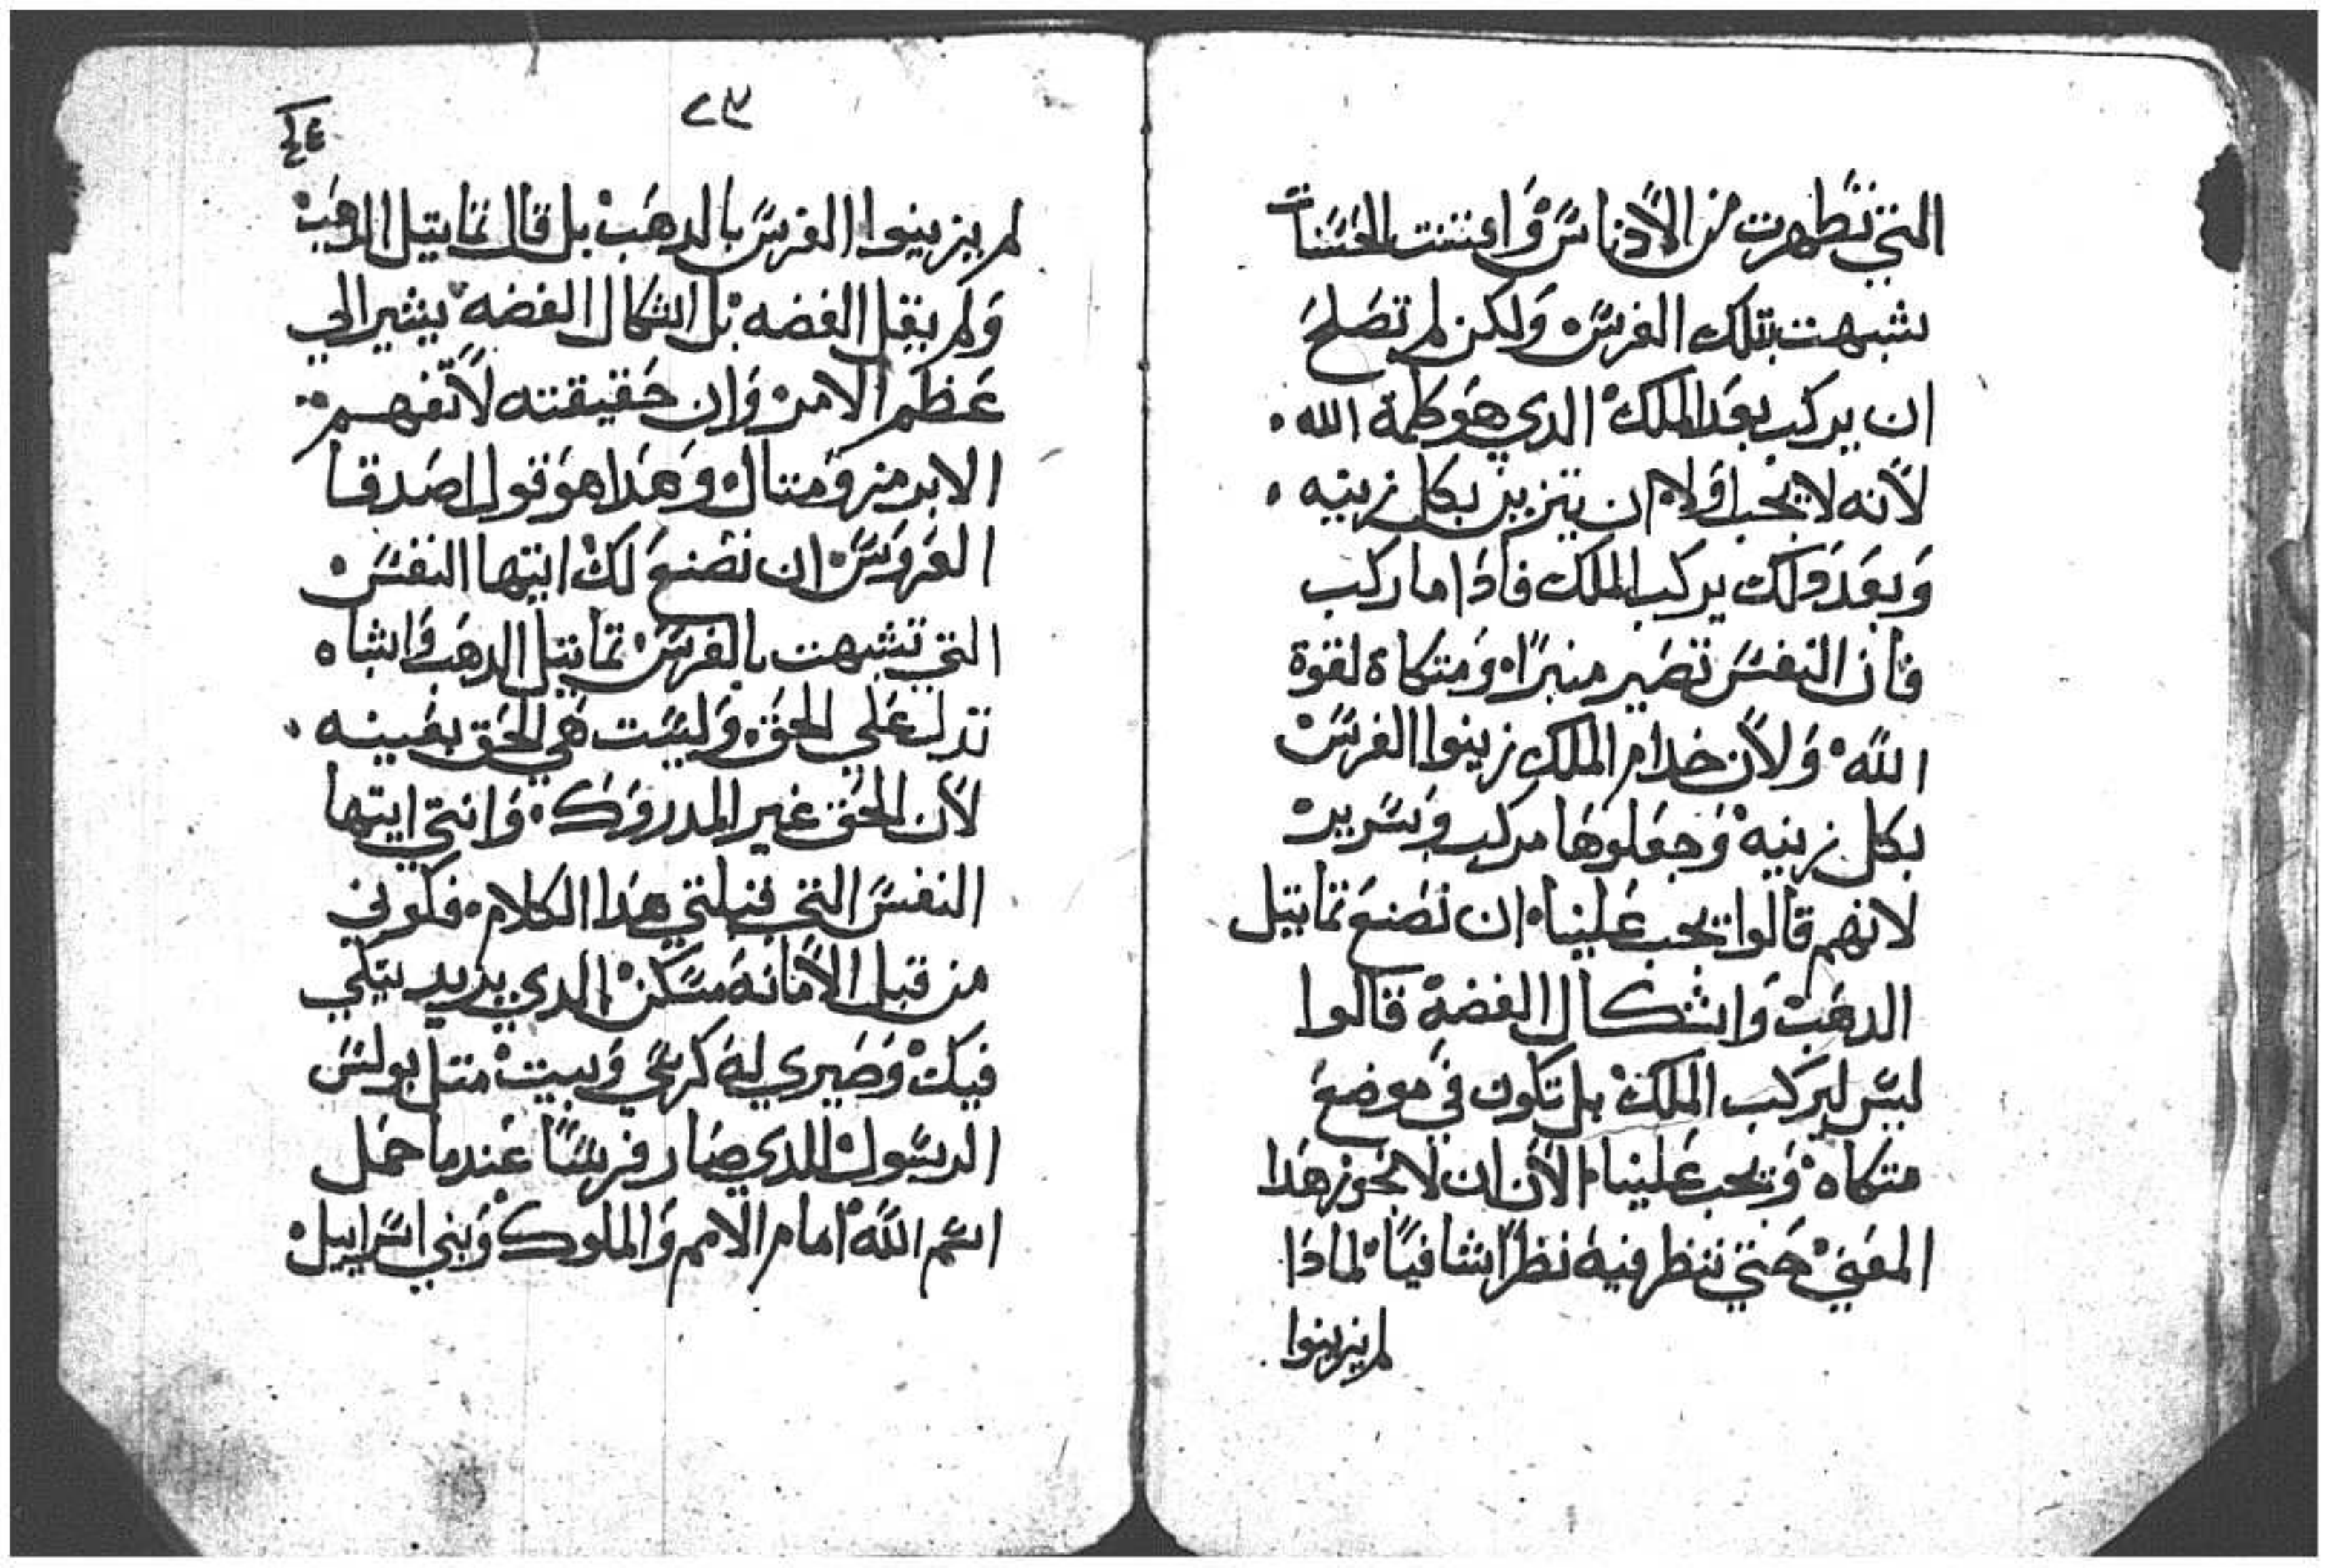 التي تطهرت من الأدناس وَاعتنت بالحسَنات
شبهت بتلك الفرس ولكن لم تصَلح
ان يركب بعَد الملك الدي هَو كلمة الله ٠
لأنه لا يجب اولا ان يتزين بكل زينه ٠
وَبعَد دَلك يركب الملك فادَا ما ركب
فان النفسَ تصَير منبرًا وَمتكاة لقوة
الله وَلأن خدام الملك زينوا الفرسَ
بكل زينه وَجعَلوهَا مركب وَسَرير
لانهم قالوا يجب عَلينا ان نصَنعَ تماتيل
الدهَب وَاشكال الفضه قالوا
ليسَ ليركب الملك بل تكون في موضعَ
متكاه وَيجب عَلينا الأن ان لا نجوز هَدا
المعَني حَتي ننظر فيه نظرًا شافيًا لمادَا
لم يزينوا
٢٣
٤٤
لم يزينوا الفرسَ بالدهَب بل قال تماتيل الدهَب
وَلم يقل الفضه بل اشكال الفضه يشير الي
عَظم الامر وَان حَقيقته لا تفهم
الا برمز وَمتال وَهَدا هَو قول اصَدقا
العَروَسَ ان نصَنعَ لك ايتها النفسَ
التي تشبهت بالفرسَ تماتيل الدهَب وَاشباه
تدل عَلي الحَق وَليسَت هَي الحَق بعَينه ٠
لأن الحَق غير المدروَك وَانتي ايتها
النفسَ التي قبلتي هَدا الكلام فكوني
من قبل الأمانه مسَكن الدي يريد يتكي
فيك وَصَيري له كرسَي وَبيت متل بولسَ
الرسَول الدي صَار فرسًَا عَندما حمَل
اسَم الله امام الامم وَالملوك وَبني اسَراييل